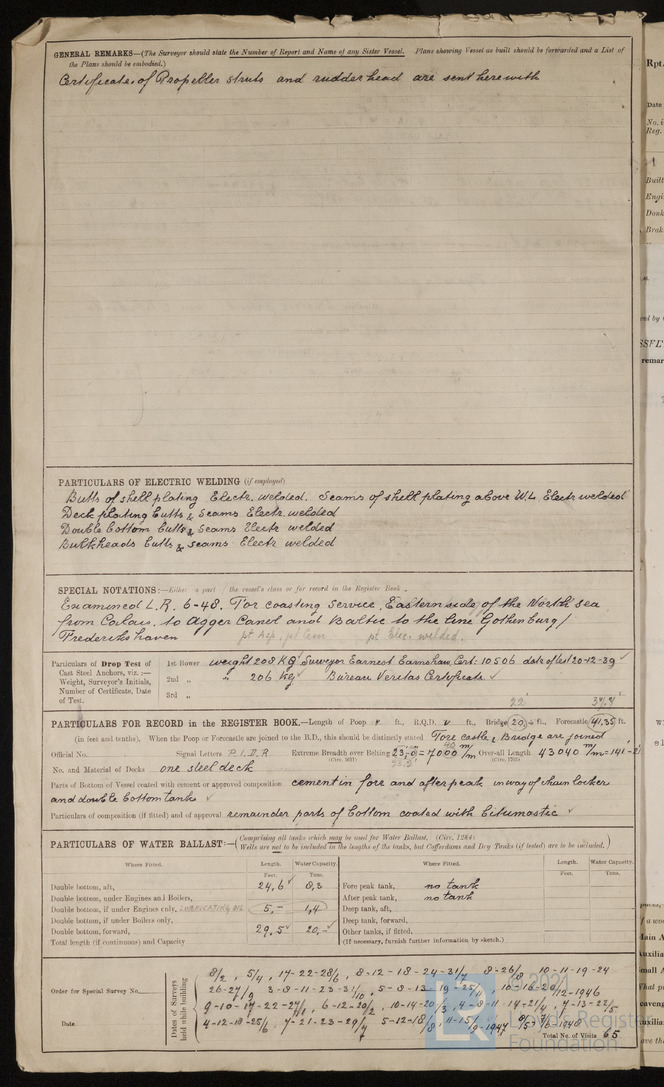 GENERAL REMARKS—(The Surveyor should state the Number of Report and Name of any Sister Vessel. Plans showing Vessel as built should be forwarded and a List of
the Plans should be embodied.)
Certificates of Propeller struts and rudderhead are sent herewith
PARTICULARS OF ELECTRIC WELDING (if employed)
Butts of shell plating Electr. welded. Seams of shell plating above W.L. Electr welded
Deck plating butts & seams Electr. welded
Double bottom butts & seams Electr welded
Bulkheads butts & seams Electr welded
SPECIAL NOTATIONS:—Either a part of the vessel's class or for record in the Register Book
Examined L.R. 6-48. For coasting service, Eastern side of the North sea
from Calais, to Agger Canal and Baltic to the line Gothenburg/
Frederikshaven pt Elec. welded.
Particulars of Drop Test of
Cast Steel Anchors, viz. :—
Weight, Surveyor's Initials,
Number of Certificate, Date
of Test.
1st Bower weight 208 KG Surveyor Earnest Earnshaw Cert: 10506 date of test 20-12-39
2nd „ „ 206 Kg Bureau Veritas Certificate
3rd „
22' 34.4'
PARTICULARS FOR RECORD in the REGISTER BOOK.—Length of Poop ft., R.Q.D. ft., Bridge 20 ft., Forecastle 41,35 ft.
(in feet and tenths). When the Poop or Forecastle are joined to the B.D., this should be distinctly stated Fore castle & Bridge are joined
Official No. Signal Letters P.I.D.R. Extreme Breadth over Belting 23,-0 = 7000 m/m Over-all Length 43040 m/m = 141-2
(Circ. 1611) (Circ. 1703)
No. and Material of Decks one steel deck
Parts of Bottom of Vessel coated with cement or approved composition cement in fore and after peak in way of chain locker
and double bottom tanks
Particulars of composition (if fitted) and of approval remainder parts of bottom coated with bitumastic
PARTICULARS OF WATER BALLAST:—(Comprising all tanks which may be used for Water Ballast. (Circ. 1284)
Wells are not to be included in the lengths of the tanks, but Cofferdams and Dry Tanks (if tested) are to be included.)
Where Fitted. Length. Water Capacity. Where Fitted. Length. Water Capacity.
Feet. Tons. Feet. Tons.
Double bottom, aft, 24,6 8,3 Fore peak tank, no tank
Double bottom, under Engines and Boilers, After peak tank, no tank
Double bottom, if under Engines only, LUBRICATING OIL 5,- 1,4 Deep tank, aft,
Double bottom, if under Boilers only, Deep tank, forward,
Double bottom, forward, 29,5 20,- Other tanks, if fitted,
Total length (if continuous) and Capacity (If necessary, furnish further information by sketch.)
Order for Special Survey No.
Date
Dates of Surveys
held while building
8/2, 5/4, 17-22-28/6, 8-12-18-24-31/7, 8-26/8, 10-11-19-24
26-27/9, 3-8-11-23-31/10
1946
1947
1948
Total No. of Visits 65
© 2021
Lloyd's Register
Foundation
Rpt.
Date
No. i
Reg.
Built
Engi
Donk